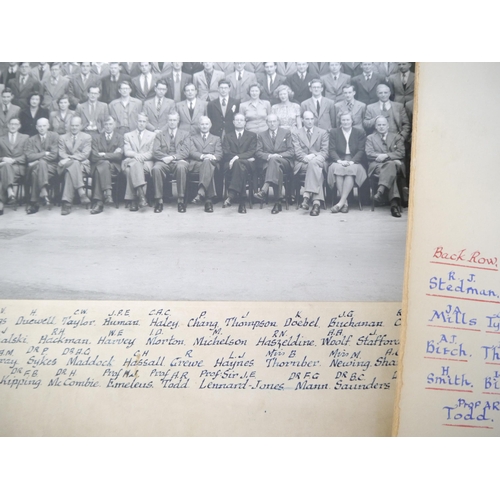 H C.W J.P.E C.A.C P J K J.G R
Dutwell, Taylor, Human, Haley, Chang, Thompson, Doebel, Buchanan
J R.H W.E I.D. M. R.N. A.A. J.V
Hackman, Harvey, Morton, Michelson, Haszeldine, Woolf, Stafford
B.M. DR P. DR A.G. C.H R L.J Miss B Miss M. A.G
Sykes, Maddock, Hassall, Crewe, Haynes, Thornber, Newing, Sha
DR F.B DR H Prof H.J. Prof A.R Prof Sir J.E DR F.G DR B.C
hipping, McCombie, Emeleus, Todd, Lennard-Jones, Mann, Saunders
Back Row.
R J.
Stedman,
J.A.
Mills Ta
A.J.
Birch. Th
H
Smith. Bi
Prof A.R
Todd.